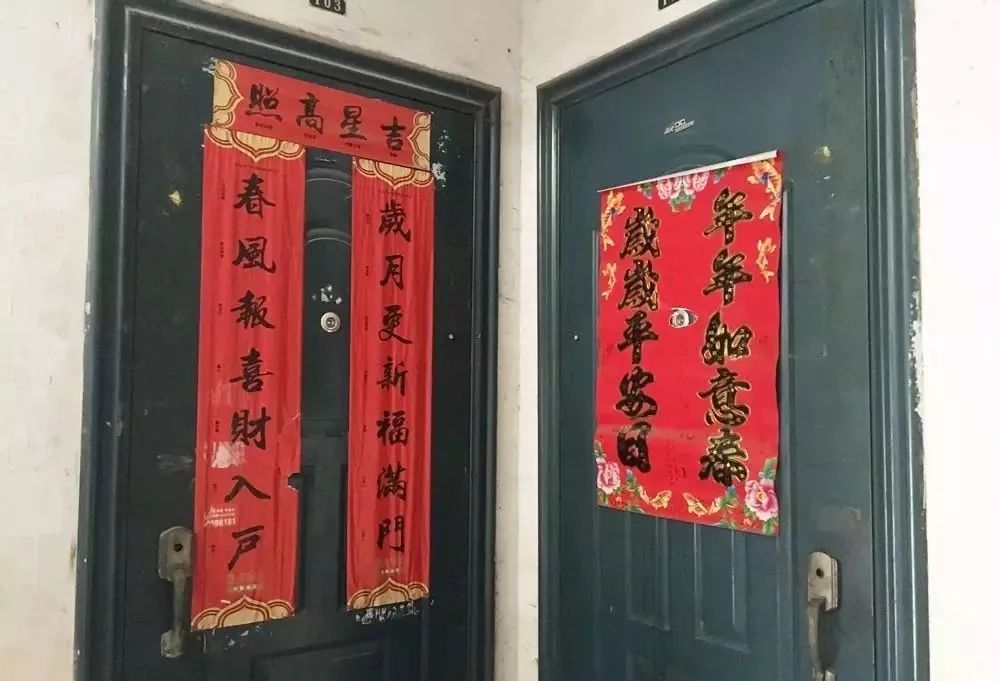 103
吉星高照
歲月更新福滿門
春風報喜財入戶
年年如意春
歲歲平安日